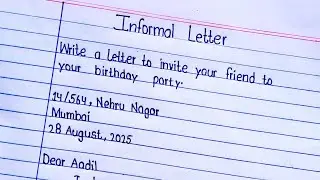 Informal Letter
Write a letter to invite your friend to
your birthday party.
14/564, Nehru Nagar
Mumbai
28 August, 2025
Dear Aadil